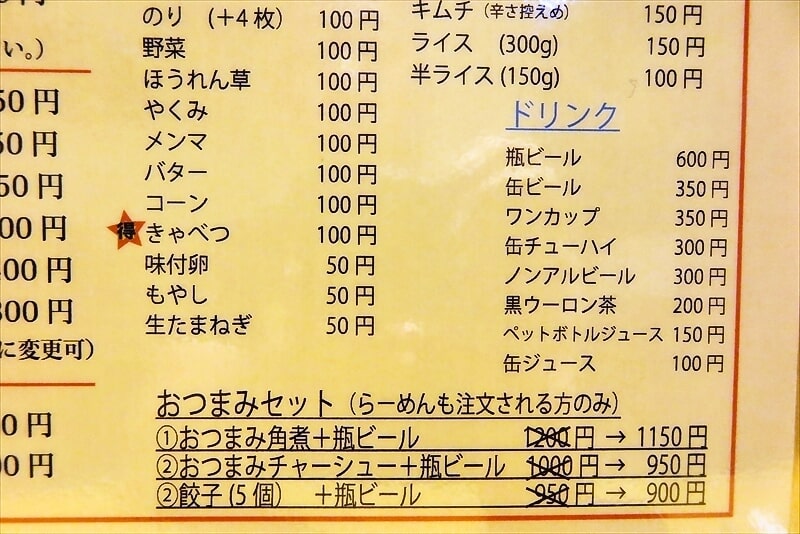 い。)
50円
50円
50円
00円
400円
300円
に変更可)
0円
00円
のり (＋4枚) 100円
野菜 100円
ほうれん草 100円
やくみ 100円
メンマ 100円
バター 100円
コーン 100円
得 きゃべつ 100円
味付卵 50円
もやし 50円
生たまねぎ 50円
キムチ (辛さ控えめ) 150円
ライス (300g) 150円
半ライス (150g) 100円
ドリンク
瓶ビール 600円
缶ビール 350円
ワンカップ 350円
缶チューハイ 300円
ノンアルビール 300円
黒ウーロン茶 200円
ペットボトルジュース 150円
缶ジュース 100円
おつまみセット (らーめんも注文される方のみ)
①おつまみ角煮＋瓶ビール 1200円 → 1150円
②おつまみチャーシュー＋瓶ビール 1000円 → 950円
②餃子(5個) ＋瓶ビール 950円 → 900円